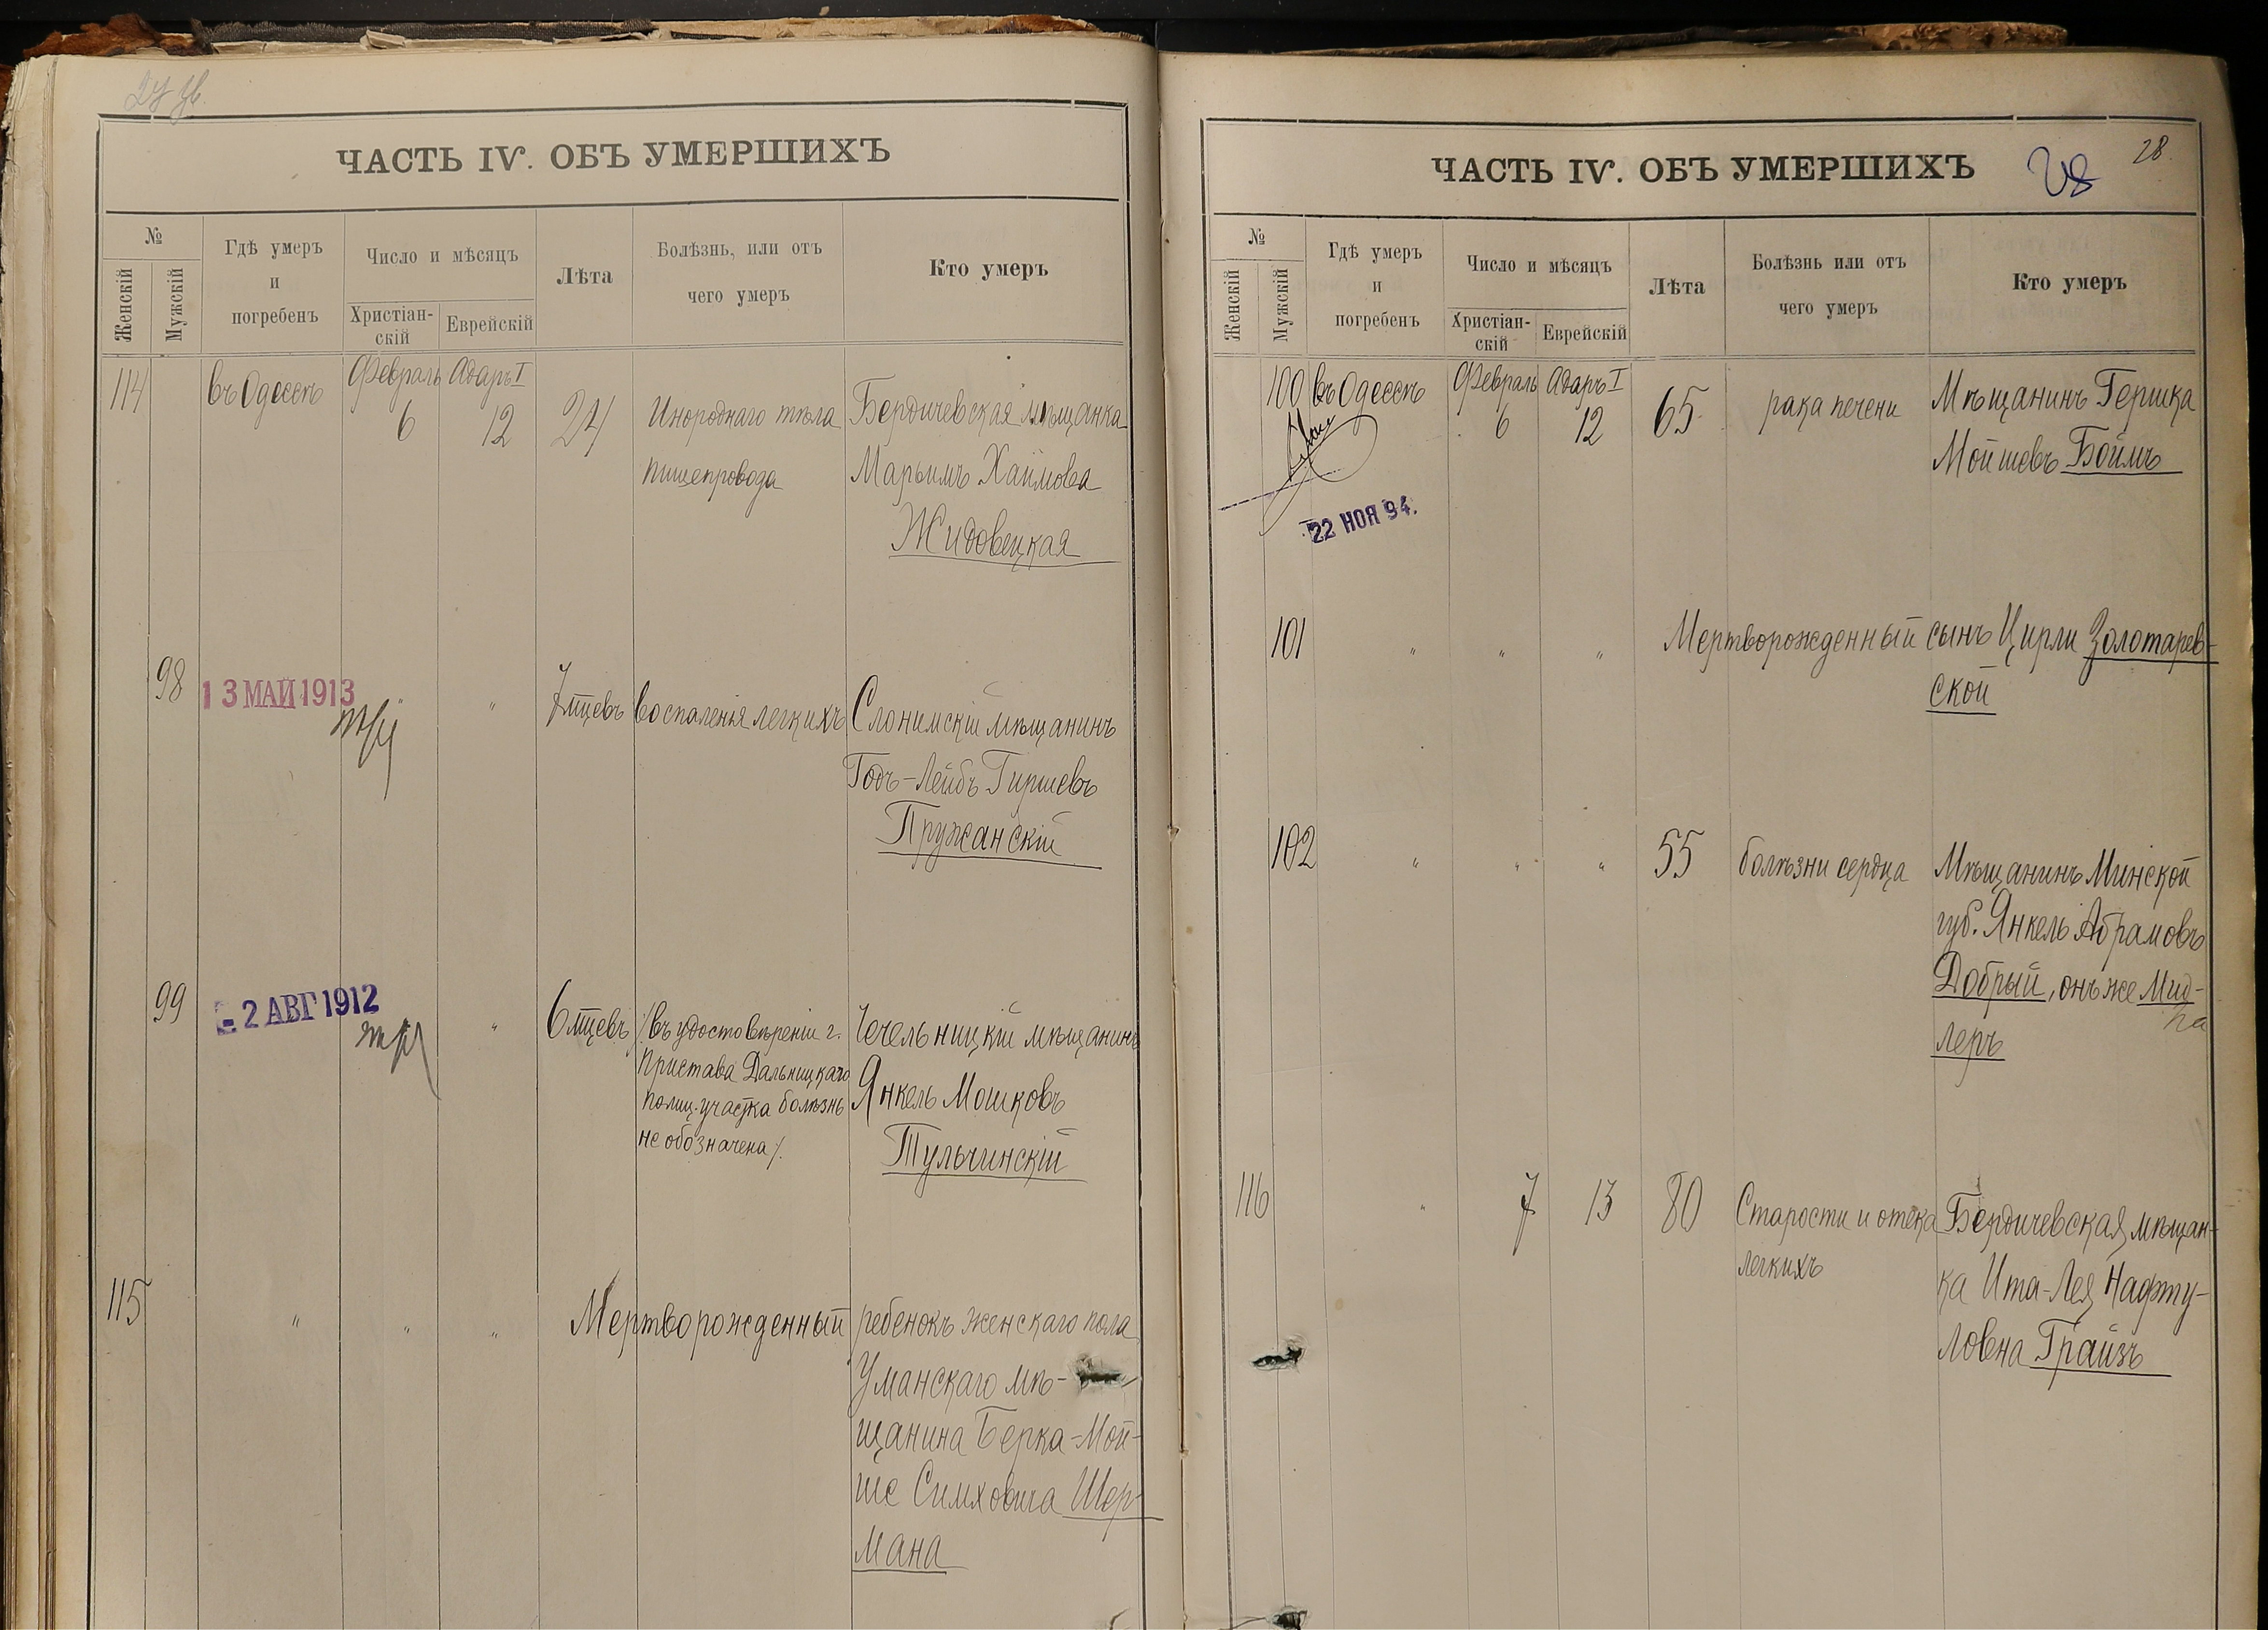 ЧАСТЬ IV. ОБЪ УМЕРШИХЪ
№
Женскій
Мужскій
Гдѣ умеръ
и
погребенъ
Число и мѣсяцъ
Христіан-
скій
Еврейскій
Лѣта
Болѣзнь, или отъ
чего умеръ
Кто умеръ
114 въ Одессѣ Февраль 6 Адаръ I 12 24 Инороднаго тѣла Бердичевская мѣщанка
пищепровода Марьимъ Хаимова
Жидовецкая
98 13 МАЙ 1913 " 7 мцевъ воспаленія легкихъ Слонимскій мѣщанинъ
Годъ-Лейбъ Гиршевъ
Пружанскій
99 - 2 АВГ 1912 " 6 мцевъ /: въ удостовѣреніи г. Чечельницкій мѣщанинъ
Пристава Дальницкаго Янкель Мошковъ
полиц. участка болѣзнь
не обозначена /. Тульчинскій
115 " " " Мертворожденный ребенокъ женскаго пола
Уманскаго мѣ-
щанина Берка-Мой-
ше Симховича Шер-
мана
ЧАСТЬ IV. ОБЪ УМЕРШИХЪ 28 28.
№
Женскій
Мужскій
Гдѣ умеръ
и
погребенъ
Число и мѣсяцъ
Христіан-
скій
Еврейскій
Лѣта
Болѣзнь или отъ
чего умеръ
Кто умеръ
100 въ Одессѣ Февраль 6 Адаръ I 12 65 рака печени Мѣщанинъ Гершка
Мойшевъ Боймъ
22 НОЯ 94.
101 " " " Мертворожденный сынъ Цирли Золотарев-
ской
102 " " " 55 болѣзни сердца Мѣщанинъ Минской
губ. Янкель Абрамовъ
Добрый, онъ же Мид-
леръ
116 " 7 13 80 Старости и отека Бердичевская мѣщан-
легкихъ ка Ита-Лея Нафту-
ловна Грайзъ